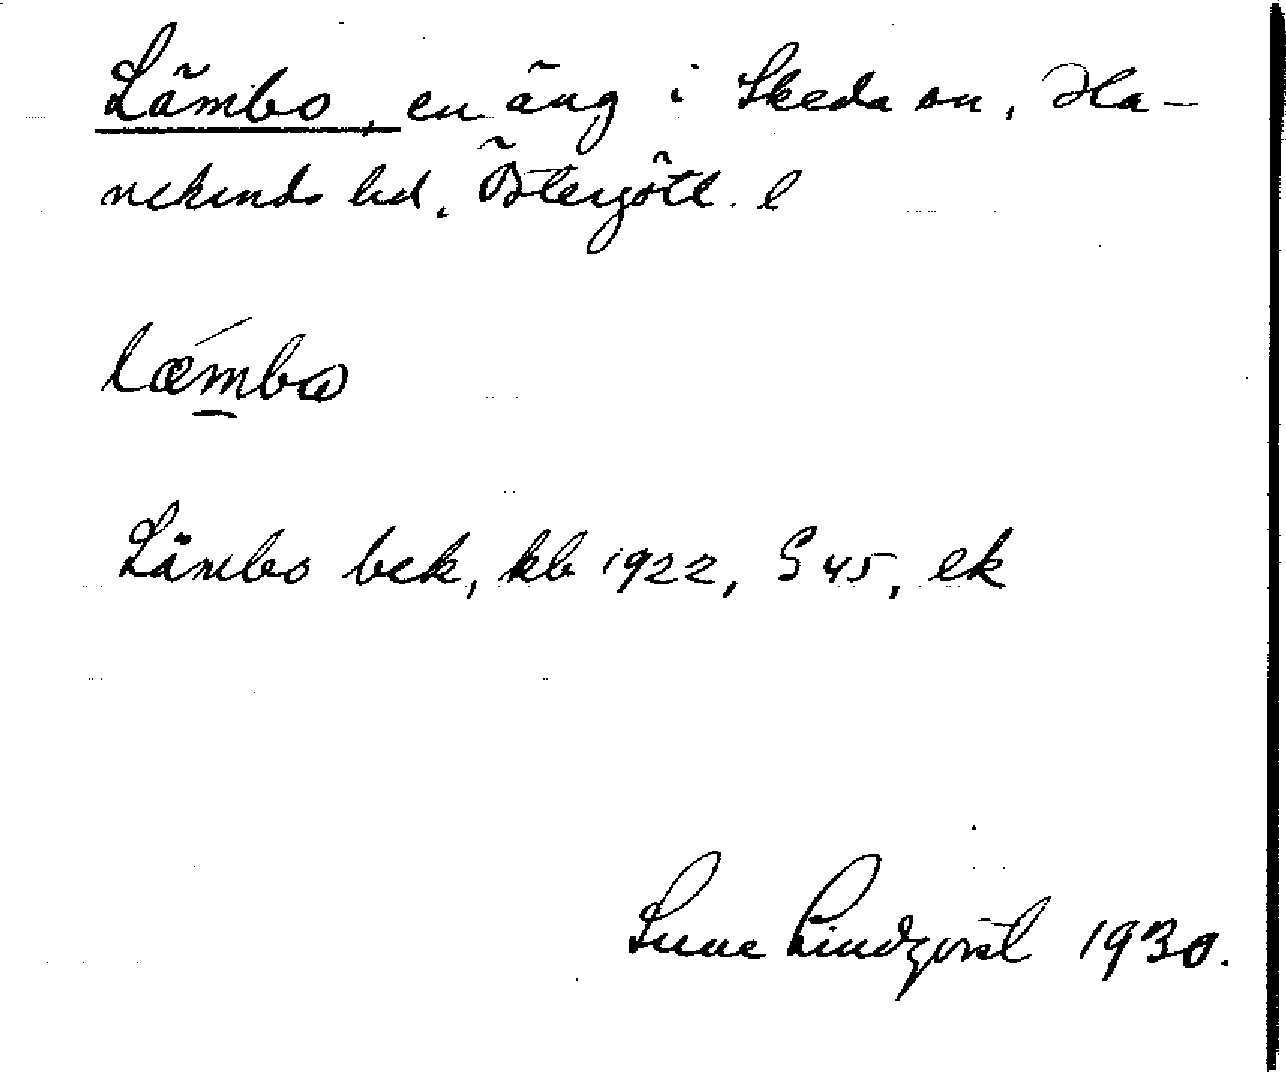 Lämbo, en äng i Skeda sn, Ha-
nekinds hd. Östergötl. l
læ´mbω
Lämbo bek, kb 1922, § 45, ek
Sune Lindqvist 1930.